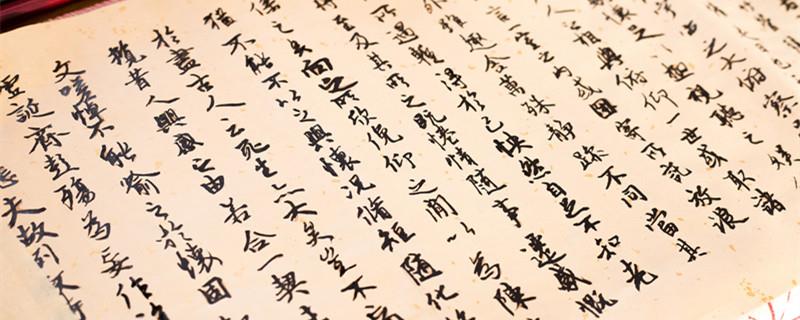 之大俯察
極視聽之娛
人之相與俯仰一世或取諸
言一室之內或因寄所託放浪
雖趣舍萬殊靜躁不同當其
所遇暫得於己怏然自足不知老
將至及其所之既惓情隨事遷感慨
係之矣向之所欣俛仰之間以為陳
猶不能不以之興懷況脩短隨化
於盡古人云死生亦大矣豈不痛
攬昔人興感之由若合一契
文嗟悼不能喻之於懷固
虛誕齊彭殤為妄作
悲夫故列敘時